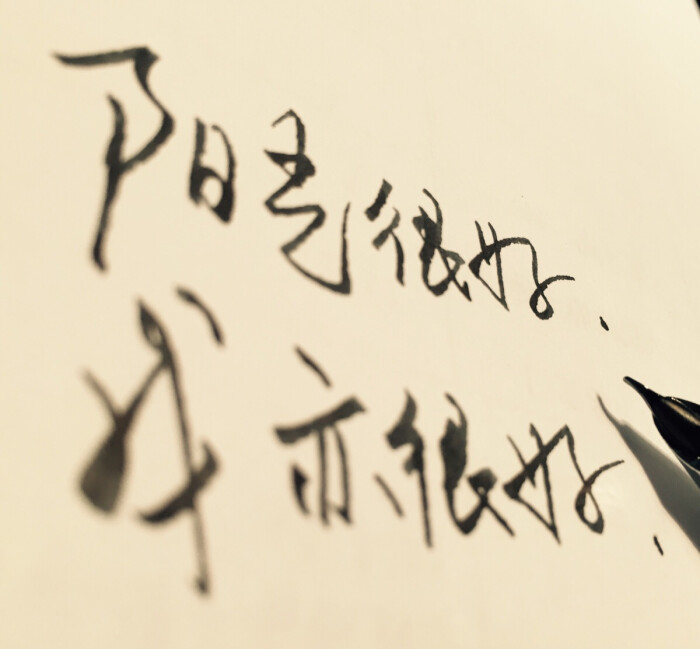 阳光很好.
我亦很好.